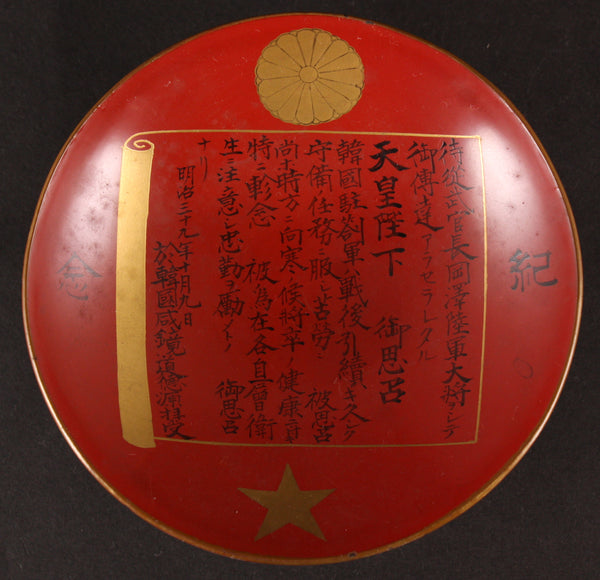 紀
侍從武官長岡澤陸軍大將ヲシテ
御傳達アラセラレタル
天皇陛下 御思召
韓國駐箚軍ハ戰後引續キ久シク
守備任務ニ服シ苦勞ニ 被思召
尚ホ時方ニ向寒ノ候將卒ノ健康ニ
特ニ軫念 被為在各自 衛
生ニ注意シ忠勤ヲ勵メトノ 御思召
ナリ
明治三十九年十月九日
於韓國咸鏡道德源拝受
念